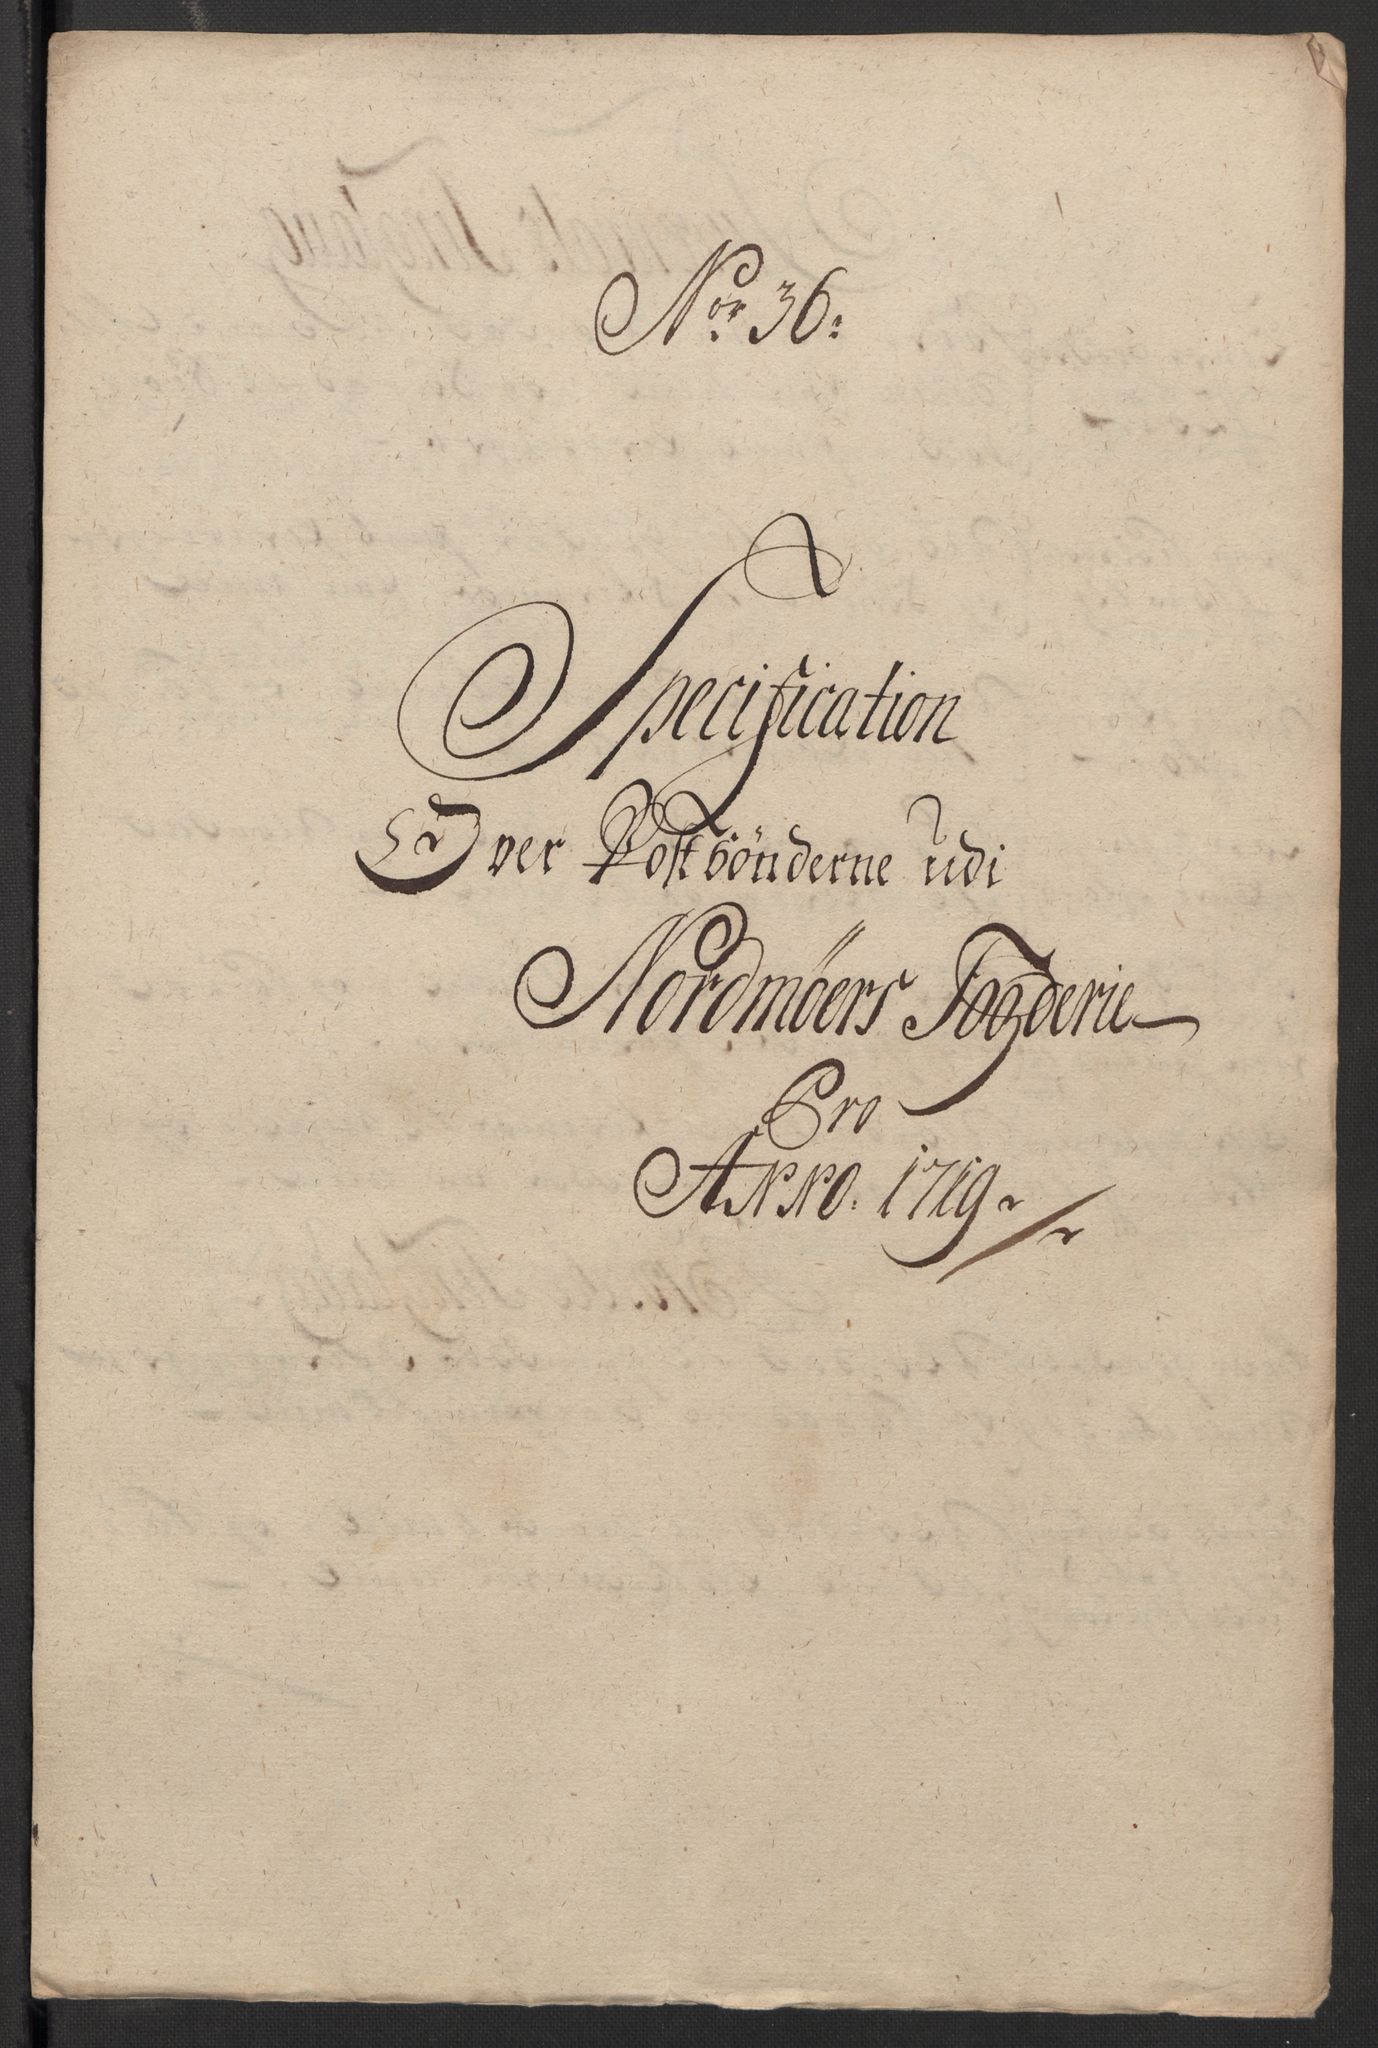 Nor 36:
Specification
Over Postbönderne udi
Nordmöers Fogderie
Pro
ANNO. 1719